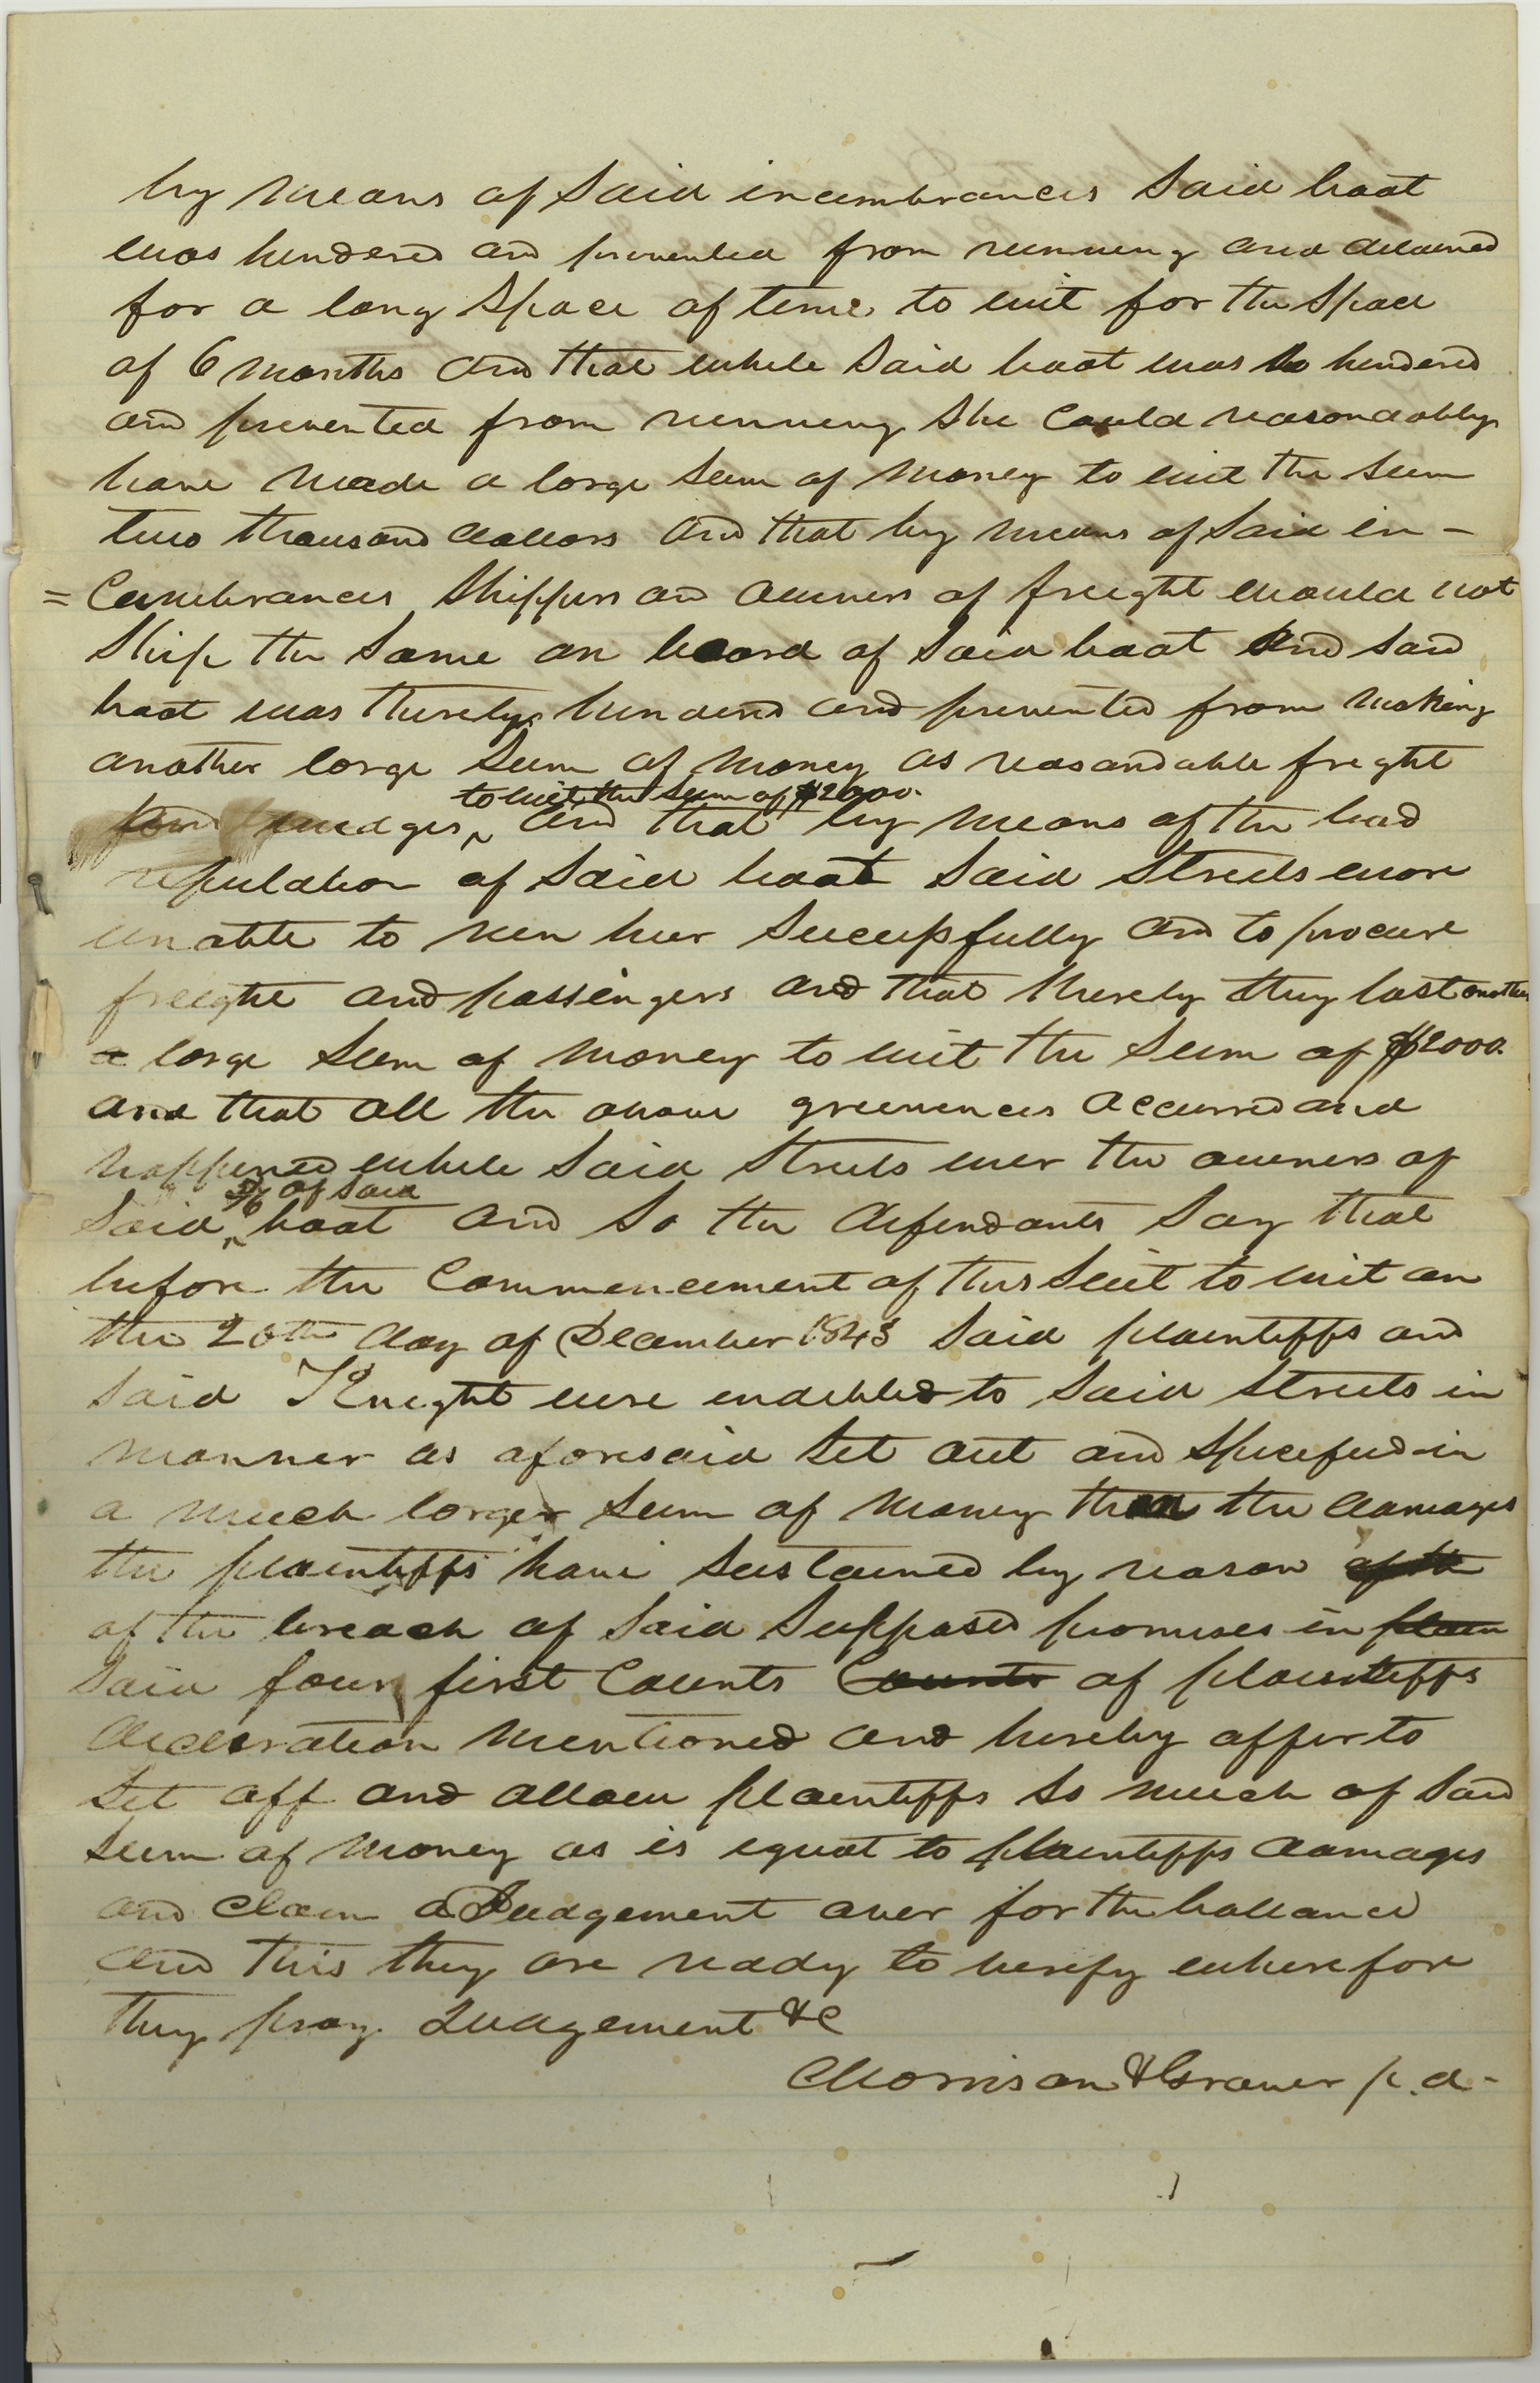 by means of said incumbrances said boat
was hindered and prevented from running and detained
for a long space of time, to wit for the space
of 6 months and that while said boat was so hindered
and prevented from running she could reasonably
have made a large sum of money to wit the sum
two thousand dollars and that by means of said in-
=cumbrances shippers and owners of freight would not
ship the same on board of said boat and said
boat was thereby hindered and prevented from making
another large sum of money as reasonable freight
to wit the sum of $2000.
and wages, and that by means of the bad
reputation of said boat said Streets were
unable to run her successfully and to procure
freight and passengers and that thereby they lost another
a large sum of money to wit the sum of $2000.
and that all the above greevences occurred and
happened while said Streets wer the owners of
3/6 of said
said boat and so the defendants say that
before the commencement of this suit to wit on
the 20th day of December 1843 said plaintiffs and
said Knight were indebted to said Streets in
manner as aforesaid set out and specified in
a much larger sum of money than the damages
the plaintiffs have sustained by reason of the
of the breach of said supposed promises in plain
said four first counts Counts of plaintiffs
declaration mentioned and hereby offer to
set off and allow plaintiffs so much of said
sum of money as is equal to plaintiffs damages
and claim a Judgement over for the ballance
and this they are ready to verify wherefore
they pray Judgement &c
Morrison & Graver p.d-